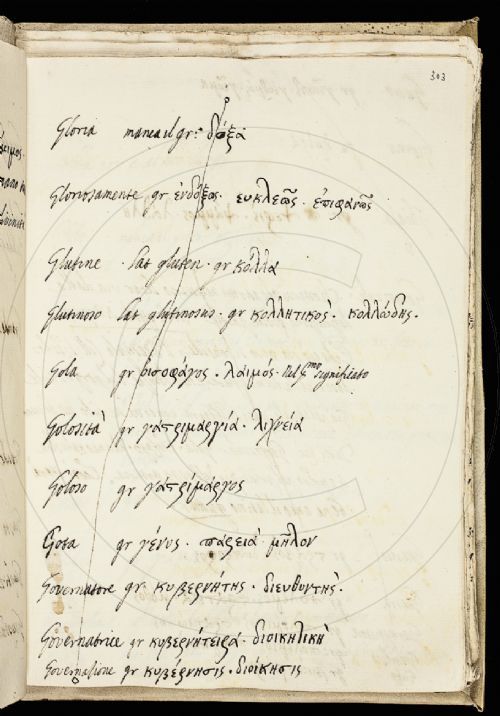 303
Gloria manca il gr: δόξα
Gloriosamente gr ἐνδόξως. ευκλεῶς. ἐπιφανῶς
Glutine. lat gluten. gr κόλλα
Glutinoso lat glutinosus. gr κολλητικος̀. κολλώδης.
Gola gr οισοφάγος. λαιμός. significato
Golosità gr γατριμαργία. λιχνεία
Goloso gr γατρίμαργος
Gota gr γένυς. παρειὰ. μῆλον
Governatore gr. κυβερνήτης. διευθυντής̀.
Governatrice gr κυβερνήτειρα. διοικητικὴ
Governatione gr κυβέρνησις. διοίκησις